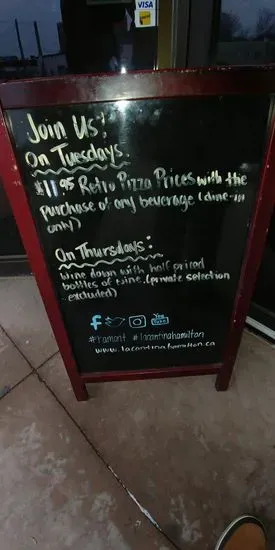 VISA
Join Us!
On Tuesdays
$11.95 Retro Pizza Prices with the
purchase of any beverage (dine-in
only)
On Thursdays:
Wine down with half priced
bottles of wine. (private selection
excluded)
You Tube
#tramont #lacantinahamilton
www.lacantinahamilton.ca